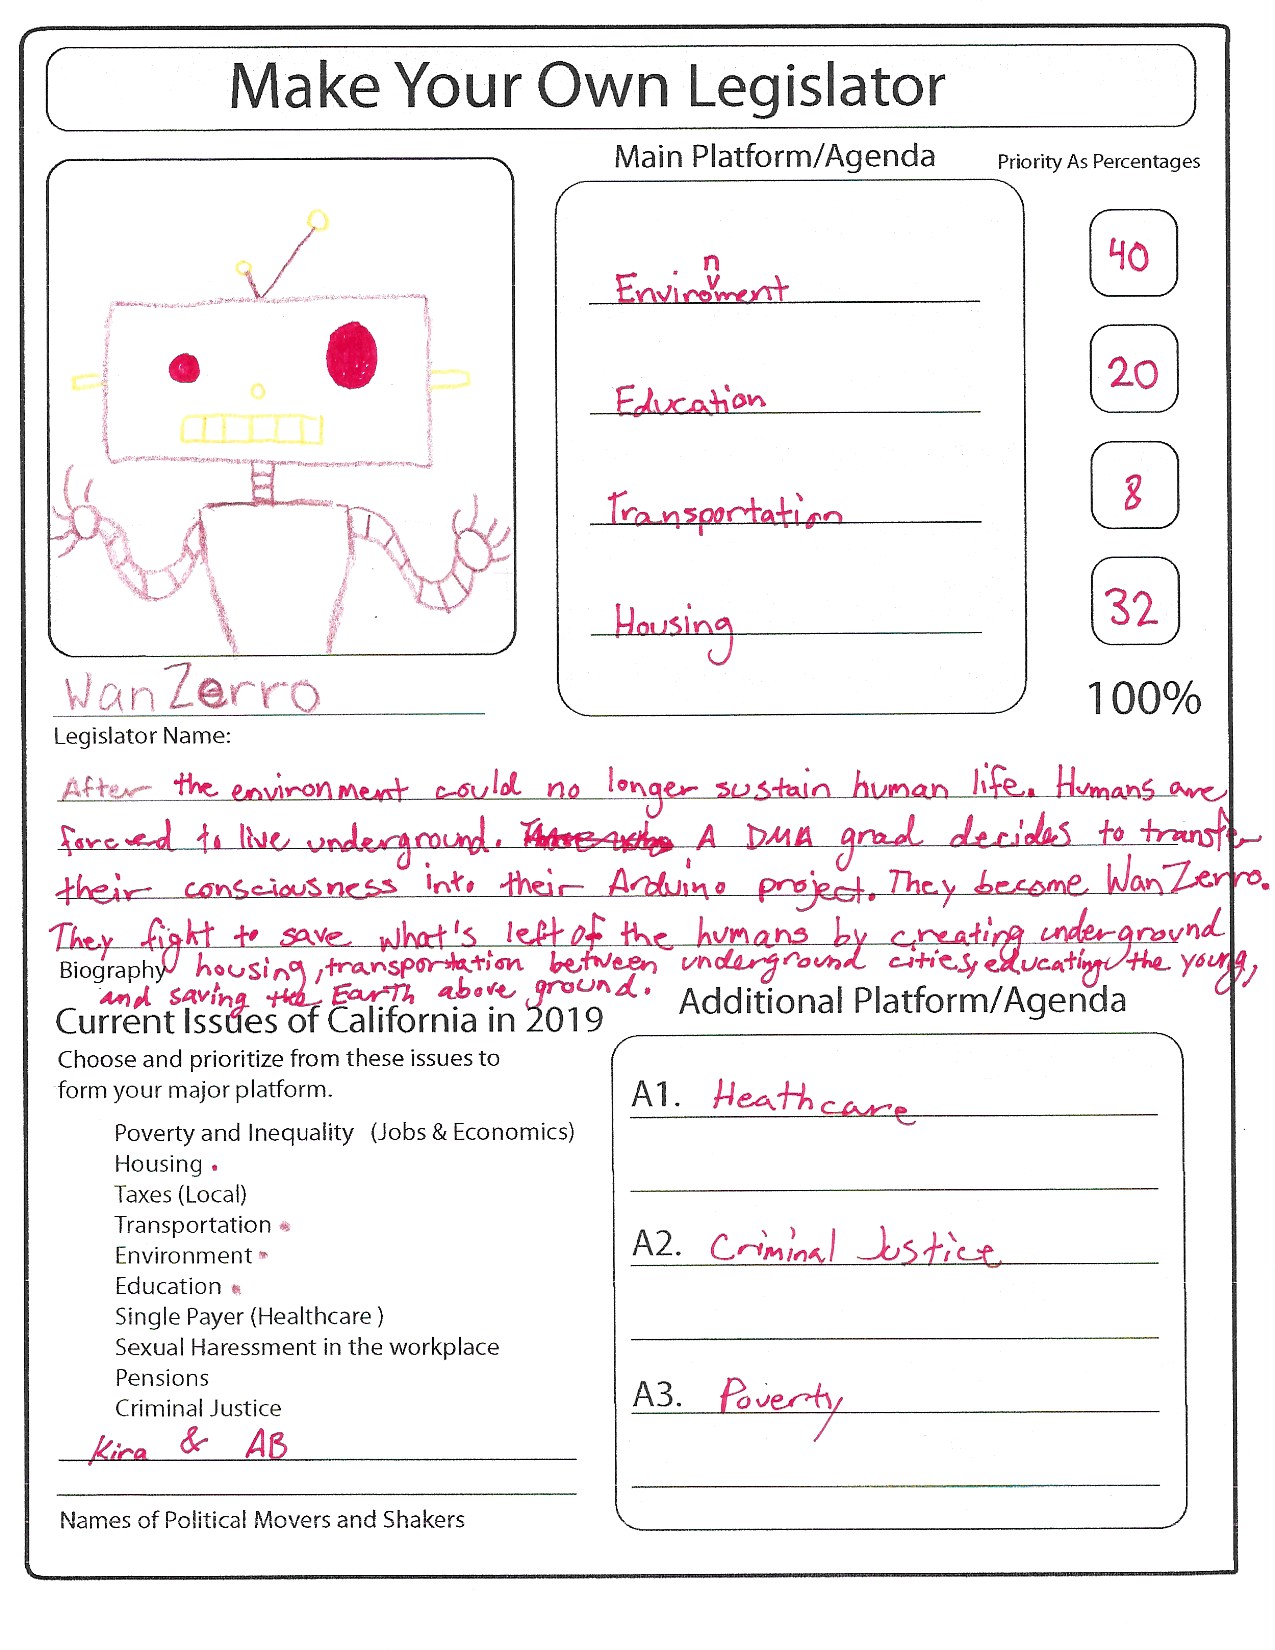 Make Your Own Legislator
Main Platform/Agenda
Priority As Percentages
Environment
40
Education
20
Transportation
8
Housing
32
100%
WanZerro
Legislator Name:
After the environment could no longer sustain human life. Humans are
forced to live underground. A DMA grad decides to transfer
their consciousness into their Arduino project. They become WanZerro.
They fight to save what's left of the humans by creating underground
Biography
housing, transportation between underground cities, educating the young,
and saving the Earth above ground.
Current Issues of California in 2019
Choose and prioritize from these issues to
form your major platform.
Poverty and Inequality (Jobs & Economics)
Housing
Taxes (Local)
Transportation
Environment
Education
Single Payer (Healthcare )
Sexual Haressment in the workplace
Pensions
Criminal Justice
Kira & AB
Names of Political Movers and Shakers
Additional Platform/Agenda
A1. Heathcare
A2. Criminal Justice
A3. Poverty